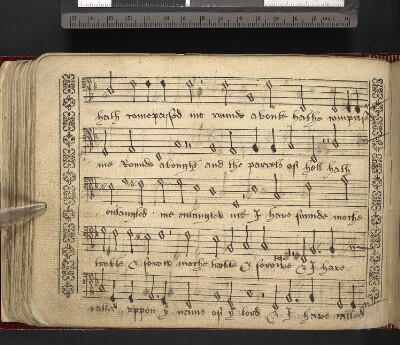 hath compassed me rounde aboute hathe compassed
me Rounde abought and the paynes off hell hath
entangled me entangled me I have founde moche
troble & sorow moche troble & sorowe & I have
called uppon yͤ name off yͤ lord & I have called